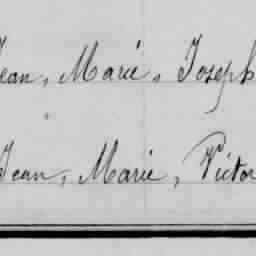 Jean, Marie, Joseph
Jean, Marie, Victor